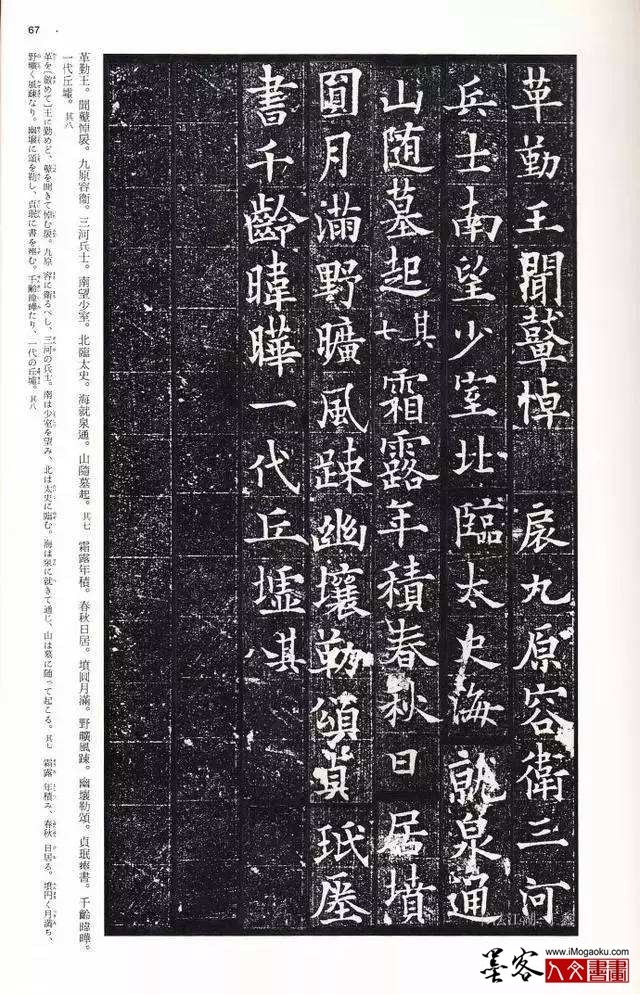 67
革勤王聞鼙悼扆九原容衛三河
兵士南望少室北臨太史海就泉通
山随墓起其七霜露年積春秋日居墳
圓月滿野曠風踈幽壤勒頌貞珉
書千齡暐曄一代丘墟其八
革勤王。聞鼙悼扆。九原容衛。三河兵士。南望少室。北臨太史。海就泉通。山隨墓起。其七 霜露年積。春秋日居。墳圓月滿。野曠風踈。幽壤勒頌。貞珉瘞書。千齡暐曄。
一代丘墟。其八
革を(斂めて)王に勤めど、鼙を聞きて悼む扆。九原 容に衛るべし、三河の兵士。南は少室を望み、北は太史に臨む。海は泉に就きて通じ、山は墓に随って起こる。其七 霜露 年積み、春秋 日居る。墳円く月満ち、
野曠く風踈なり。幽壤に頌を勒し、貞珉に書を瘞む。千齡暐曄たり、一代の丘墟。其八
www.iMogaoku.com
墨客人文書畫